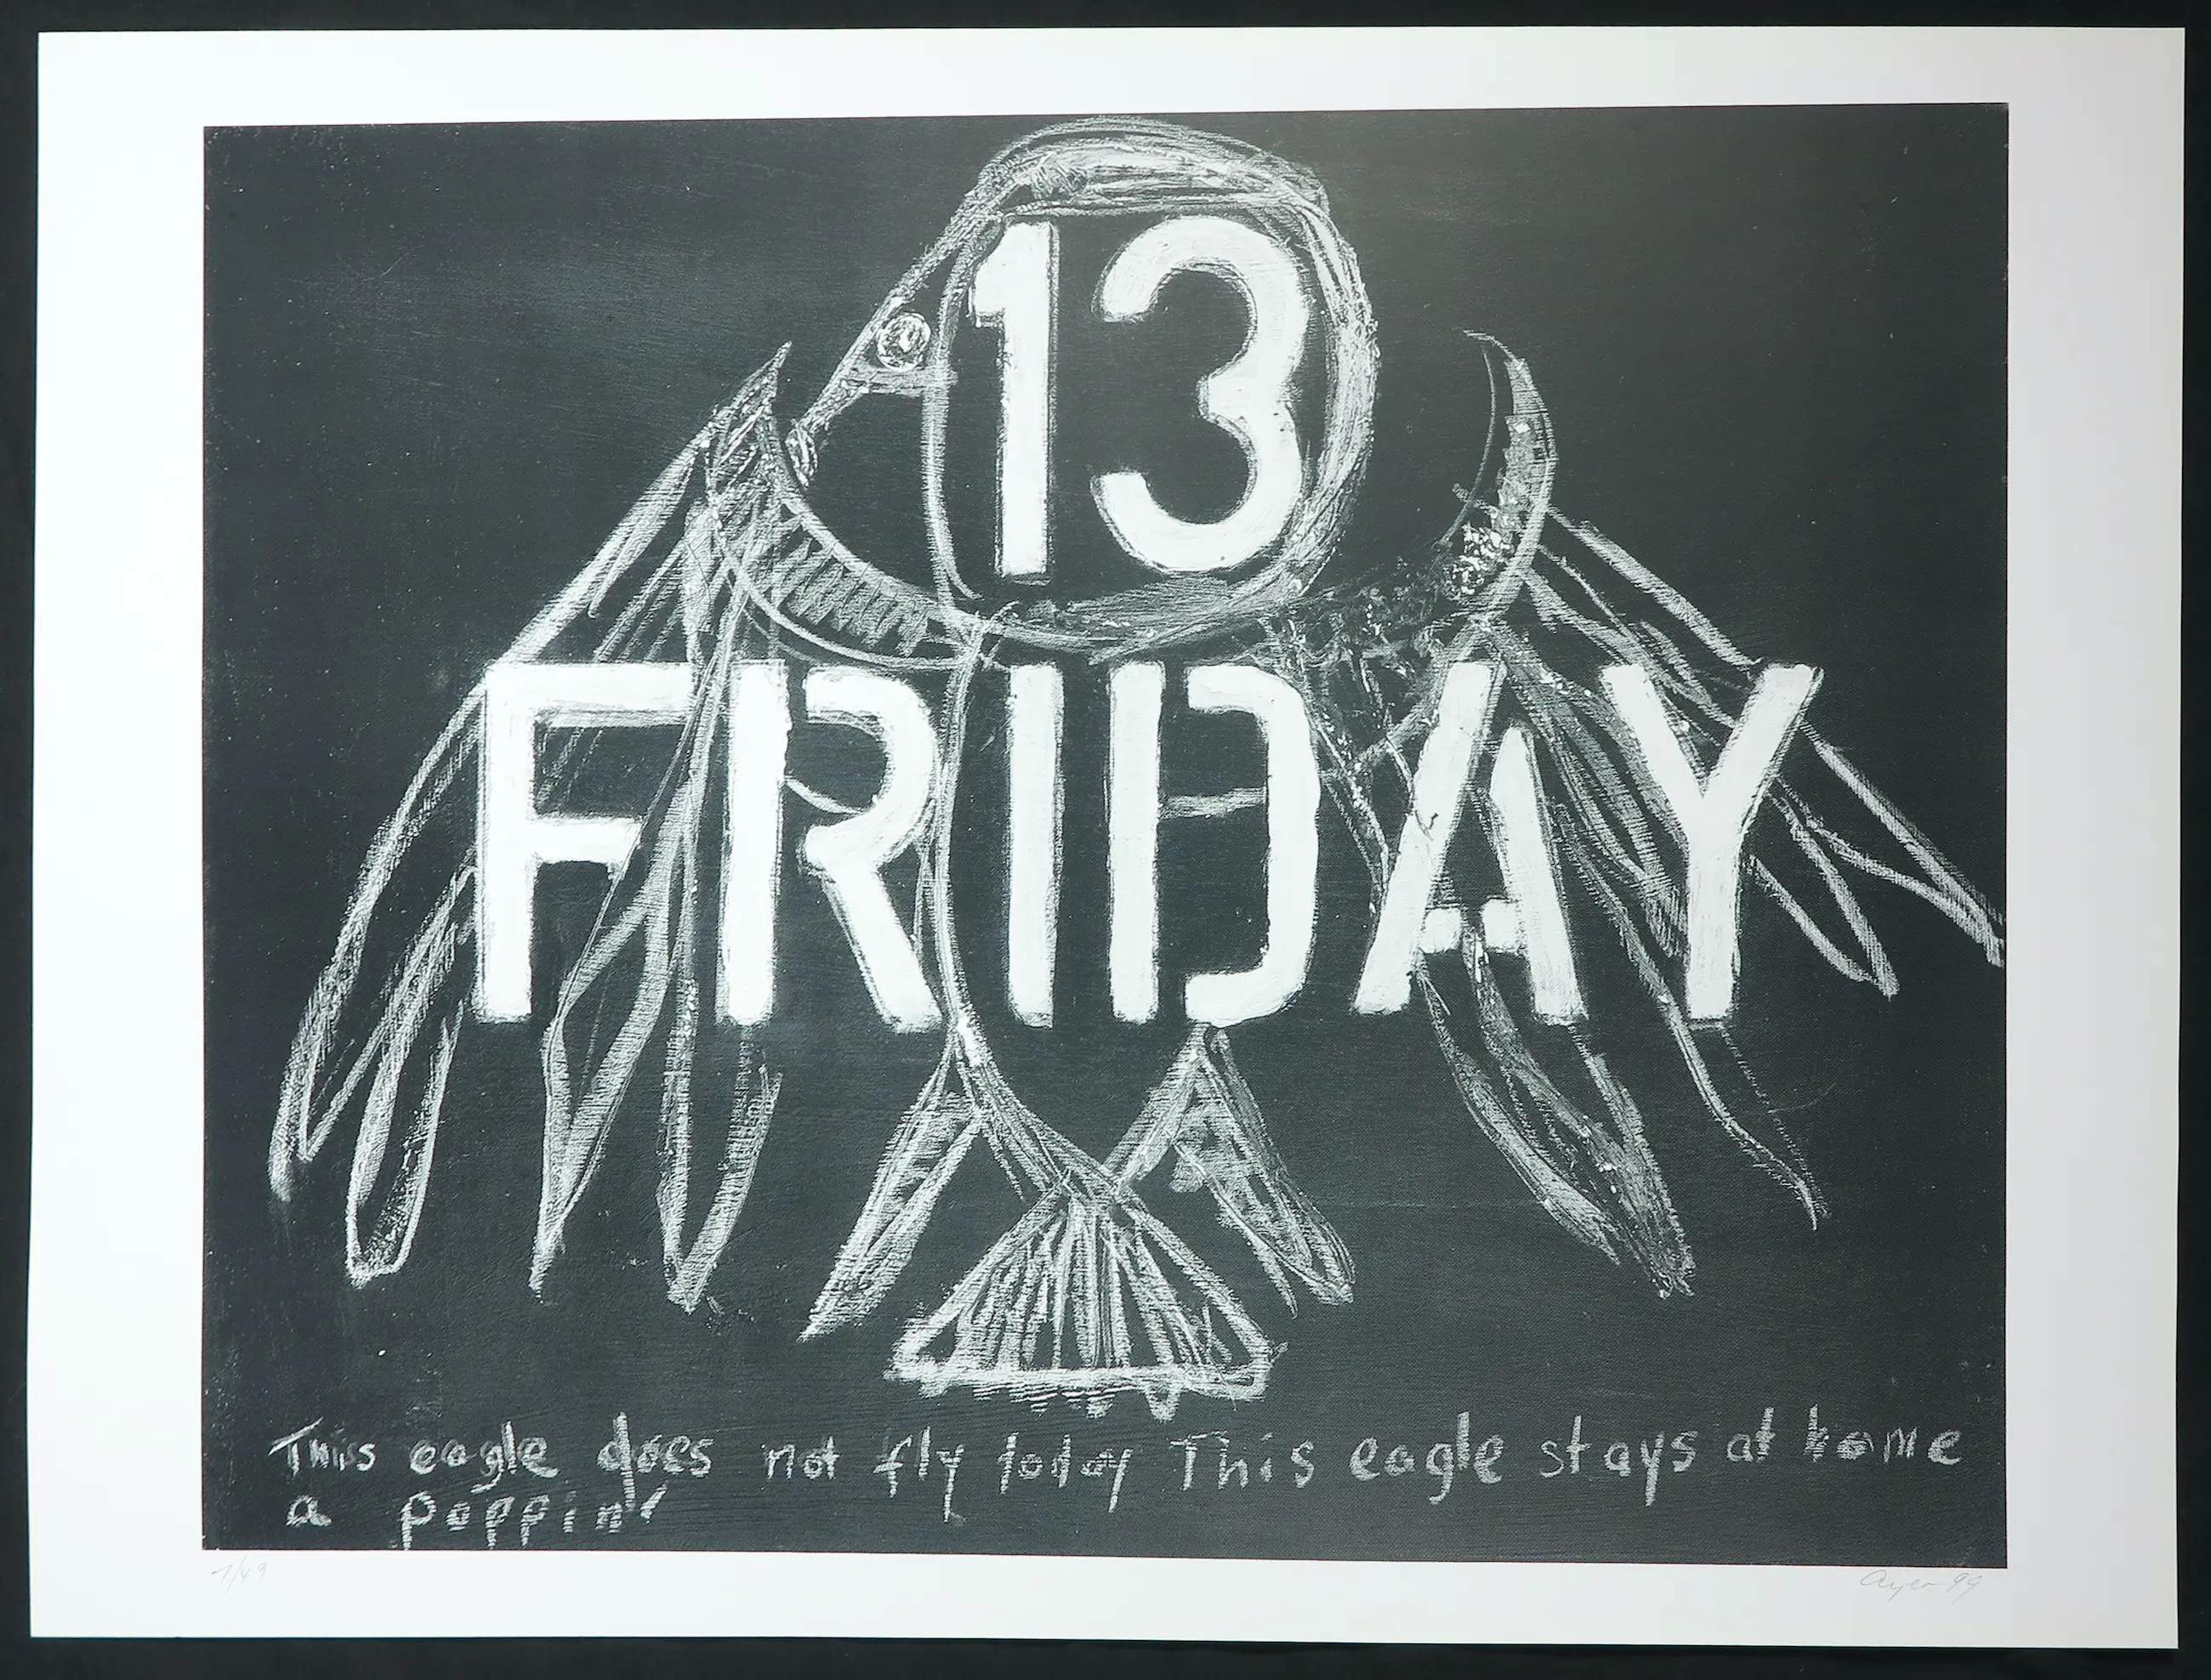 13
FRIDAY
This eagle does not fly today This eagle stays at home
a poppin'
1/49
Ayer 99